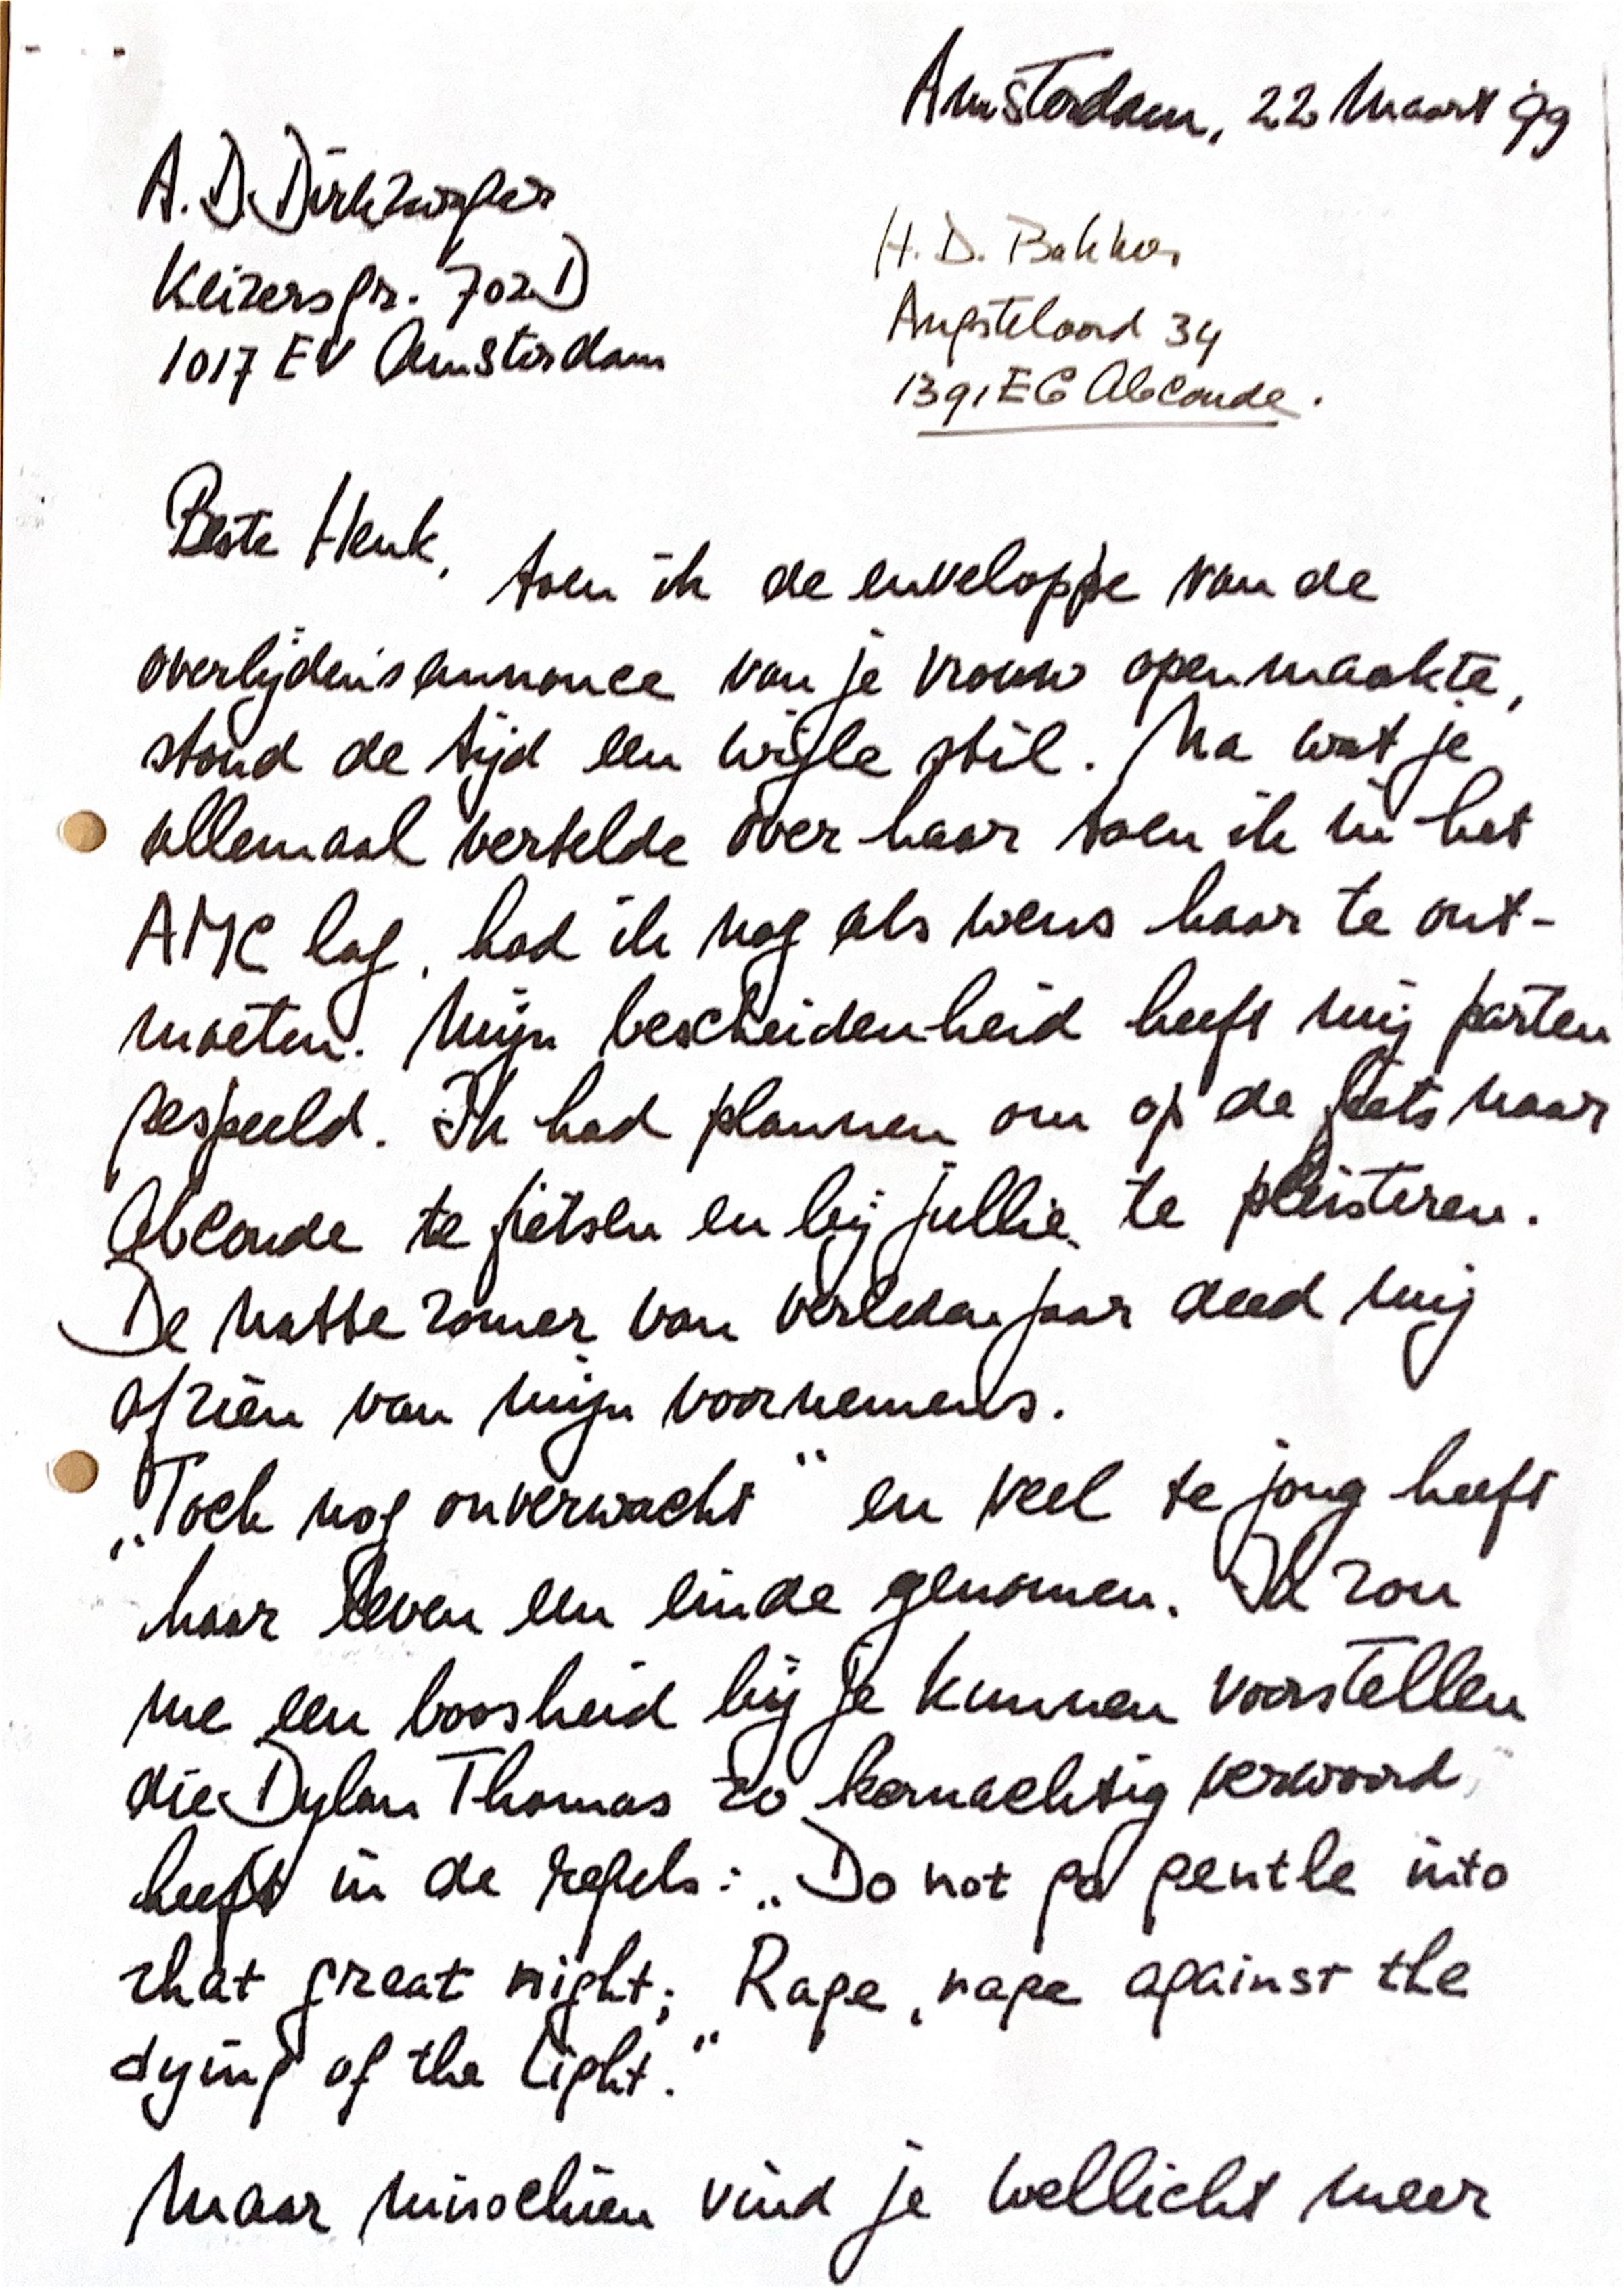 Amsterdam, 22 Maart '99
A. D. Dirkzwager
Keizersgr. 702D
1017 EV Amsterdam
H. D. Bakker
Angsteloord 34
1391 EG Abcoude.
Beste Henk,
toen ik de enveloppe van de
overlijdensannonce van je vrouw openmaakte,
stond de tijd een wijle stil. Na wat je
allemaal vertelde over haar toen ik in het
AMC lag, had ik nog als wens haar te ont-
moeten. Mijn bescheidenheid heeft mij parten
gespeeld. Ik had plannen om op de fiets naar
Abcoude te fietsen en bij jullie te pleisteren.
De natte zomer van verleden jaar deed mij
afzien van mijn voornemens.
„Toch nog onverwacht" en veel te jong heeft
haar leven een einde genomen. Ik zou
me een boosheid bij je kunnen voorstellen
die Dylan Thomas zo kernachtig verwoord
heeft in de regels: „Do not go gentle into
that great night; Rage, rage against the
dying of the light."
Maar misschien vind je wellicht meer